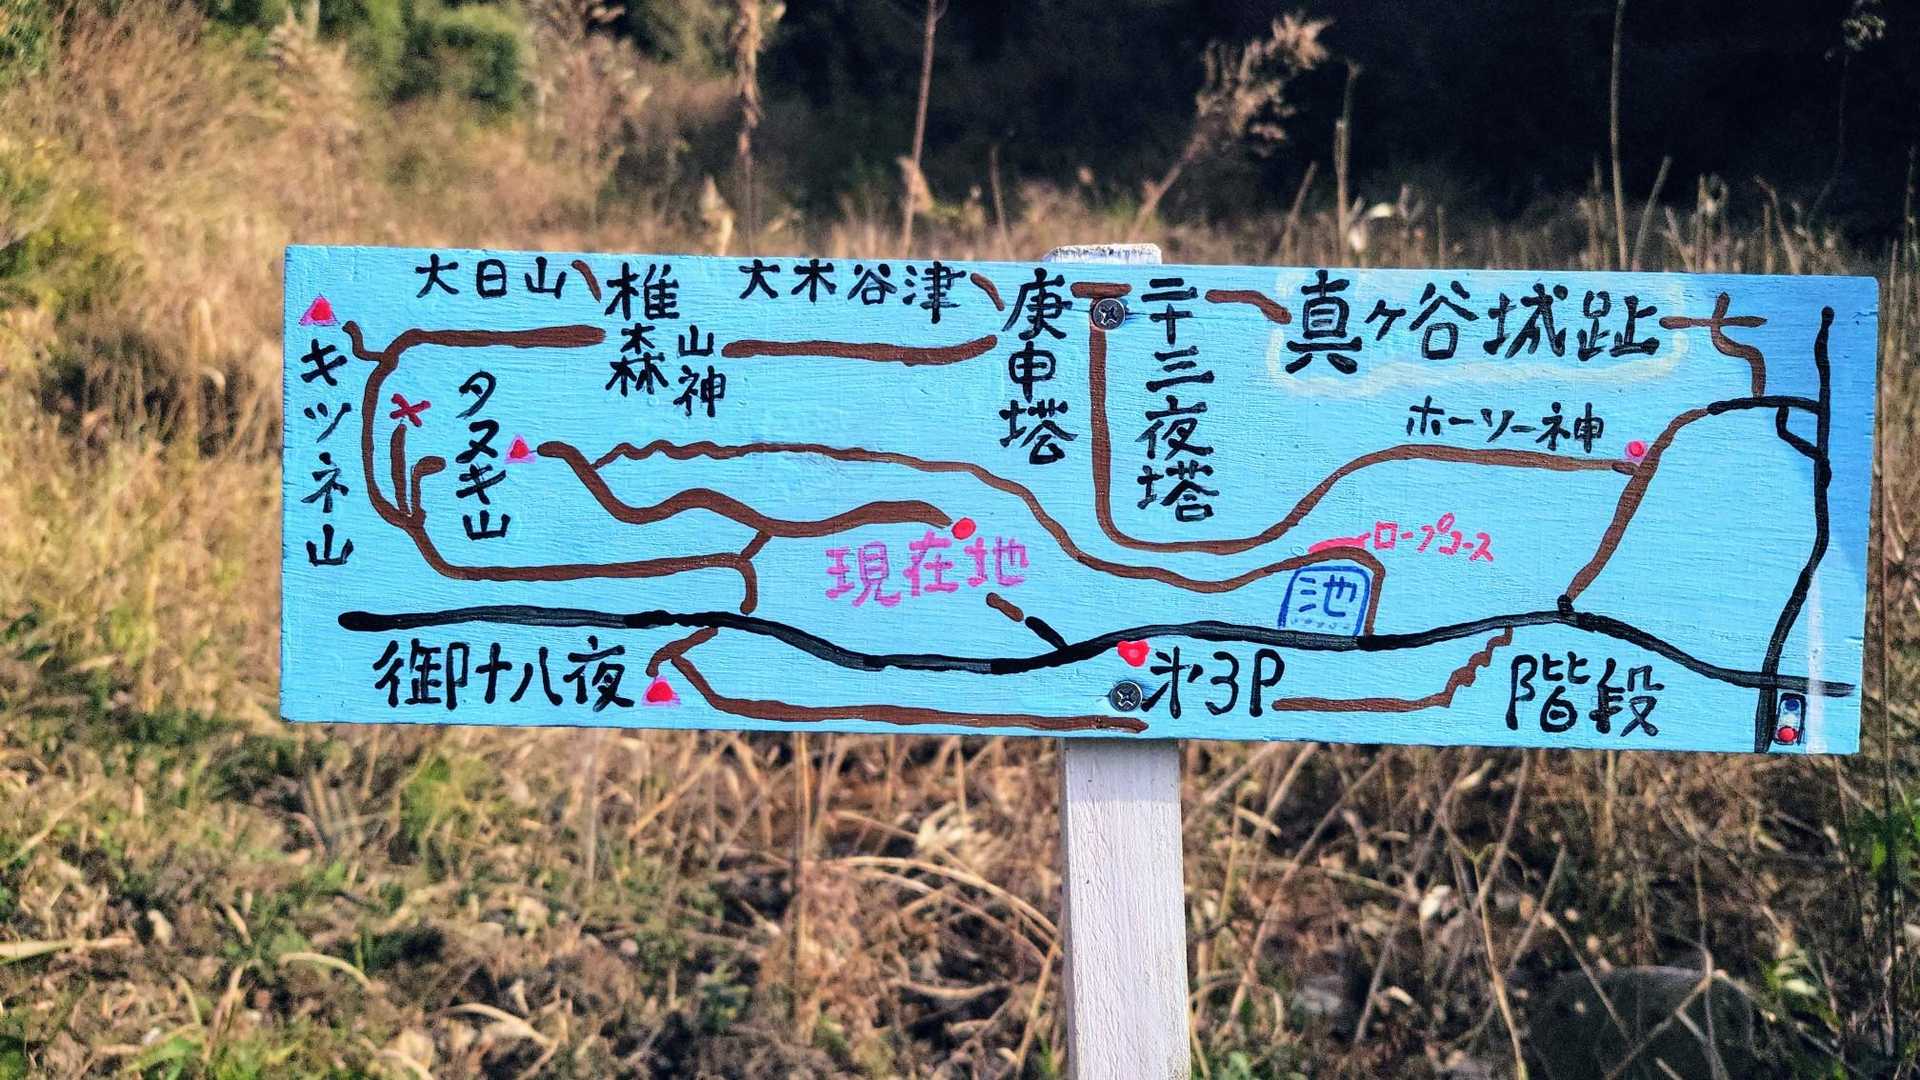 大日山
椎森
山神
大木谷津
庚申塔
二十三夜塔
真ヶ谷城趾
キツネ山
タヌキ山
ホーソー神
ロープコース
現在地
池
御十八夜
㐧3P
階段